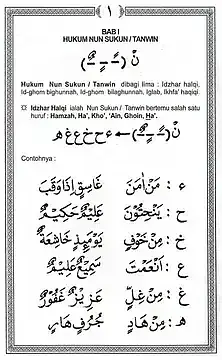 ١
BAB I
HUKUM NUN SUKUN / TANWIN
نْ (ـًـ ـٍـ ـٌـ)
Hukum Nun Sukun / Tanwin dibagi lima : Idzhar halqi,
Id-ghom bighunnah, Id-ghom bilaghunnah, Iglab, Ikhfa' haqiqi.
Idzhar Halqi ialah Nun Sukun / Tanwin bertemu salah satu
huruf : Hamzah, Ha', Kho', 'Ain, Ghoin, Ha.
نْ (ـًـ ـٍـ ـٌـ) ← ء ح خ ع غ ه
Contohnya :
ء : مَنْ اٰمَنَ غَاسِقٍ اِذَا وَقَبَ
ح : يَنْحِتُوْنَ عَلِيْمٌ حَكِيْمٌ
خ : مِنْ خَوْفٍ يَوْمَئِذٍ خَاشِعَةٌ
ع : اَنْعَمْتَ سَمِيْعٌ عَلِيْمٌ
غ : مِنْ غِلٍّ عَزِيْزٌ غَفُوْرٌ
هـ : مِنْ هَادٍ جُرُفٍ هَارٍ